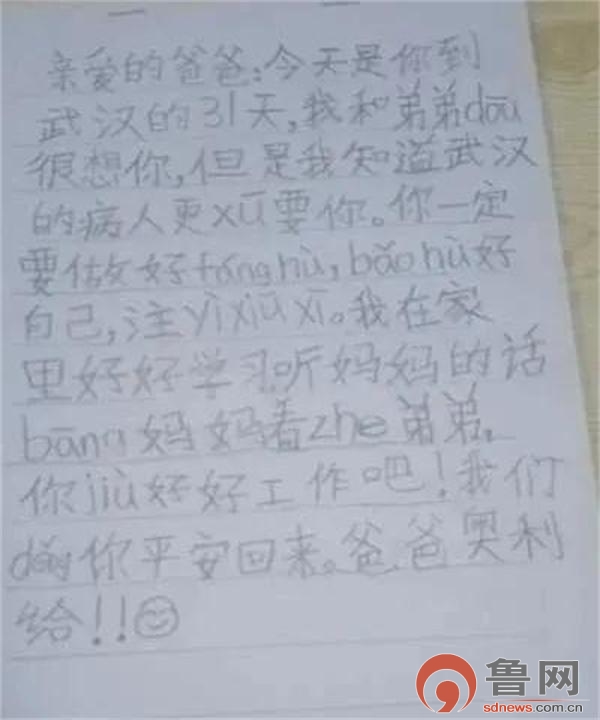 亲爱的爸爸:今天是你到
武汉的31天,我和弟弟dōu
很想你,但是我知道武汉
的病人更xū要你。你一定
要做好fánghù,bǎohù好
自己,注yìxiūxī。我在家
里好好学习听妈妈的话
bāng妈妈看zhe弟弟,
你jiù好好工作吧!我们
děng你平安回来。爸爸奥利
给!!
鲁网
sdnews.com.cn